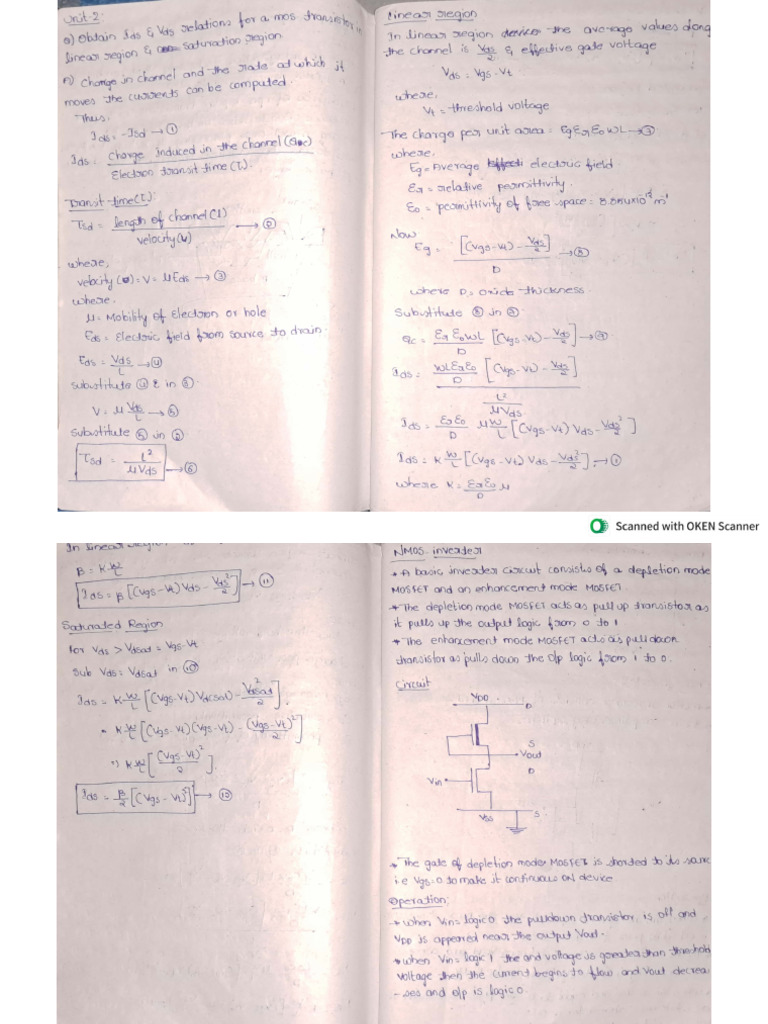 Unit-2:
a) Obtain Ids & Vds relations for a mos transistor in
linear region & saturation region.
A) Change in channel and the rate at which it
moves the currents can be computed.
Thus,
Ids = -Isd → ①
Ids = Charge induced in the channel (Qc) / Electron transit time (τ).
Transit time(τ):
τsd = length of channel (l) / velocity(v) → ②
where,
velocity (v) = V = μEds → ③
where.
μ = Mobility of electron or hole
Eds = Electric field from source to drain.
Eds = Vds / L → ④
substitute ④ in ③
V = μ Vds / L → ⑤
substitute ⑤ in ②
τsd = l² / μVds → ⑥
Linear region
In linear region the average values along
the channel is Vds/2 & effective gate voltage
Vds = Vgs - Vt
where,
Vt = threshold voltage
The charge per unit area = Eg Er Eo WL →
where,
Eg = Average electric field.
Er = relative permittivity.
Eo = permittivity of free space =
Now
Eg = [(Vgs-Vt) - Vds/2] / D → ⑧
where D = oxide thickness.
Substitute ⑧ in
Qc = Er Eo WL / D [(Vgs-Vt) - Vds/2] → ⑨
Ids = WL Er Eo / D [(Vgs-Vt) - Vds/2] / L² / μVds
Ids = Er Eo / D μW / L [(Vgs-Vt) Vds - Vds²/2]
Ids = K W/L [(Vgs-Vt) Vds - Vds²/2]. →
where K = Er Eo / D μ
Scanned with OKEN Scanner
In linear Region
β = K W/L
Ids = β [(Vgs-Vt)Vds - Vds²/2] → ⑪
Saturated Region
for Vds > Vdsat = Vgs-Vt
Sub Vds = Vdsat in ⑩
Ids = K W/L [(Vgs-Vt) Vdsat) - Vdsat²/2].
= K W/L [(Vgs-Vt)(Vgs-Vt) - (Vgs-Vt)²/2]
= K W/L [(Vgs-Vt)²/2].
Ids = β/2 [(Vgs - Vt)²] →
NMOS inverter
* A basic inverter circuit consists of a depletion mode
MOSFET and an enhancement mode MOSFET.
* The depletion mode MOSFET acts as pull up transistor as
it pulls up the output logic from 0 to 1
* The enhancement mode MOSFET acts as pulldown
transistor as pulls down the o/p logic from 1 to 0.
Circuit
VDD
D
S
Vout
D
Vin
Vss
S
* The gate of depletion mode MOSFET is shorted to its sourc
i.e Vgs = 0 to make it continuous ON device
Operation:
* when Vin = logic 0 the pulldown transistor, is, off and
VDD is appeared near the output Vout.
* when Vin = logic 1 the and voltage is greater than threshold
voltage then the current begins to flow and Vout decrea
-ses and o/p is logic 0.